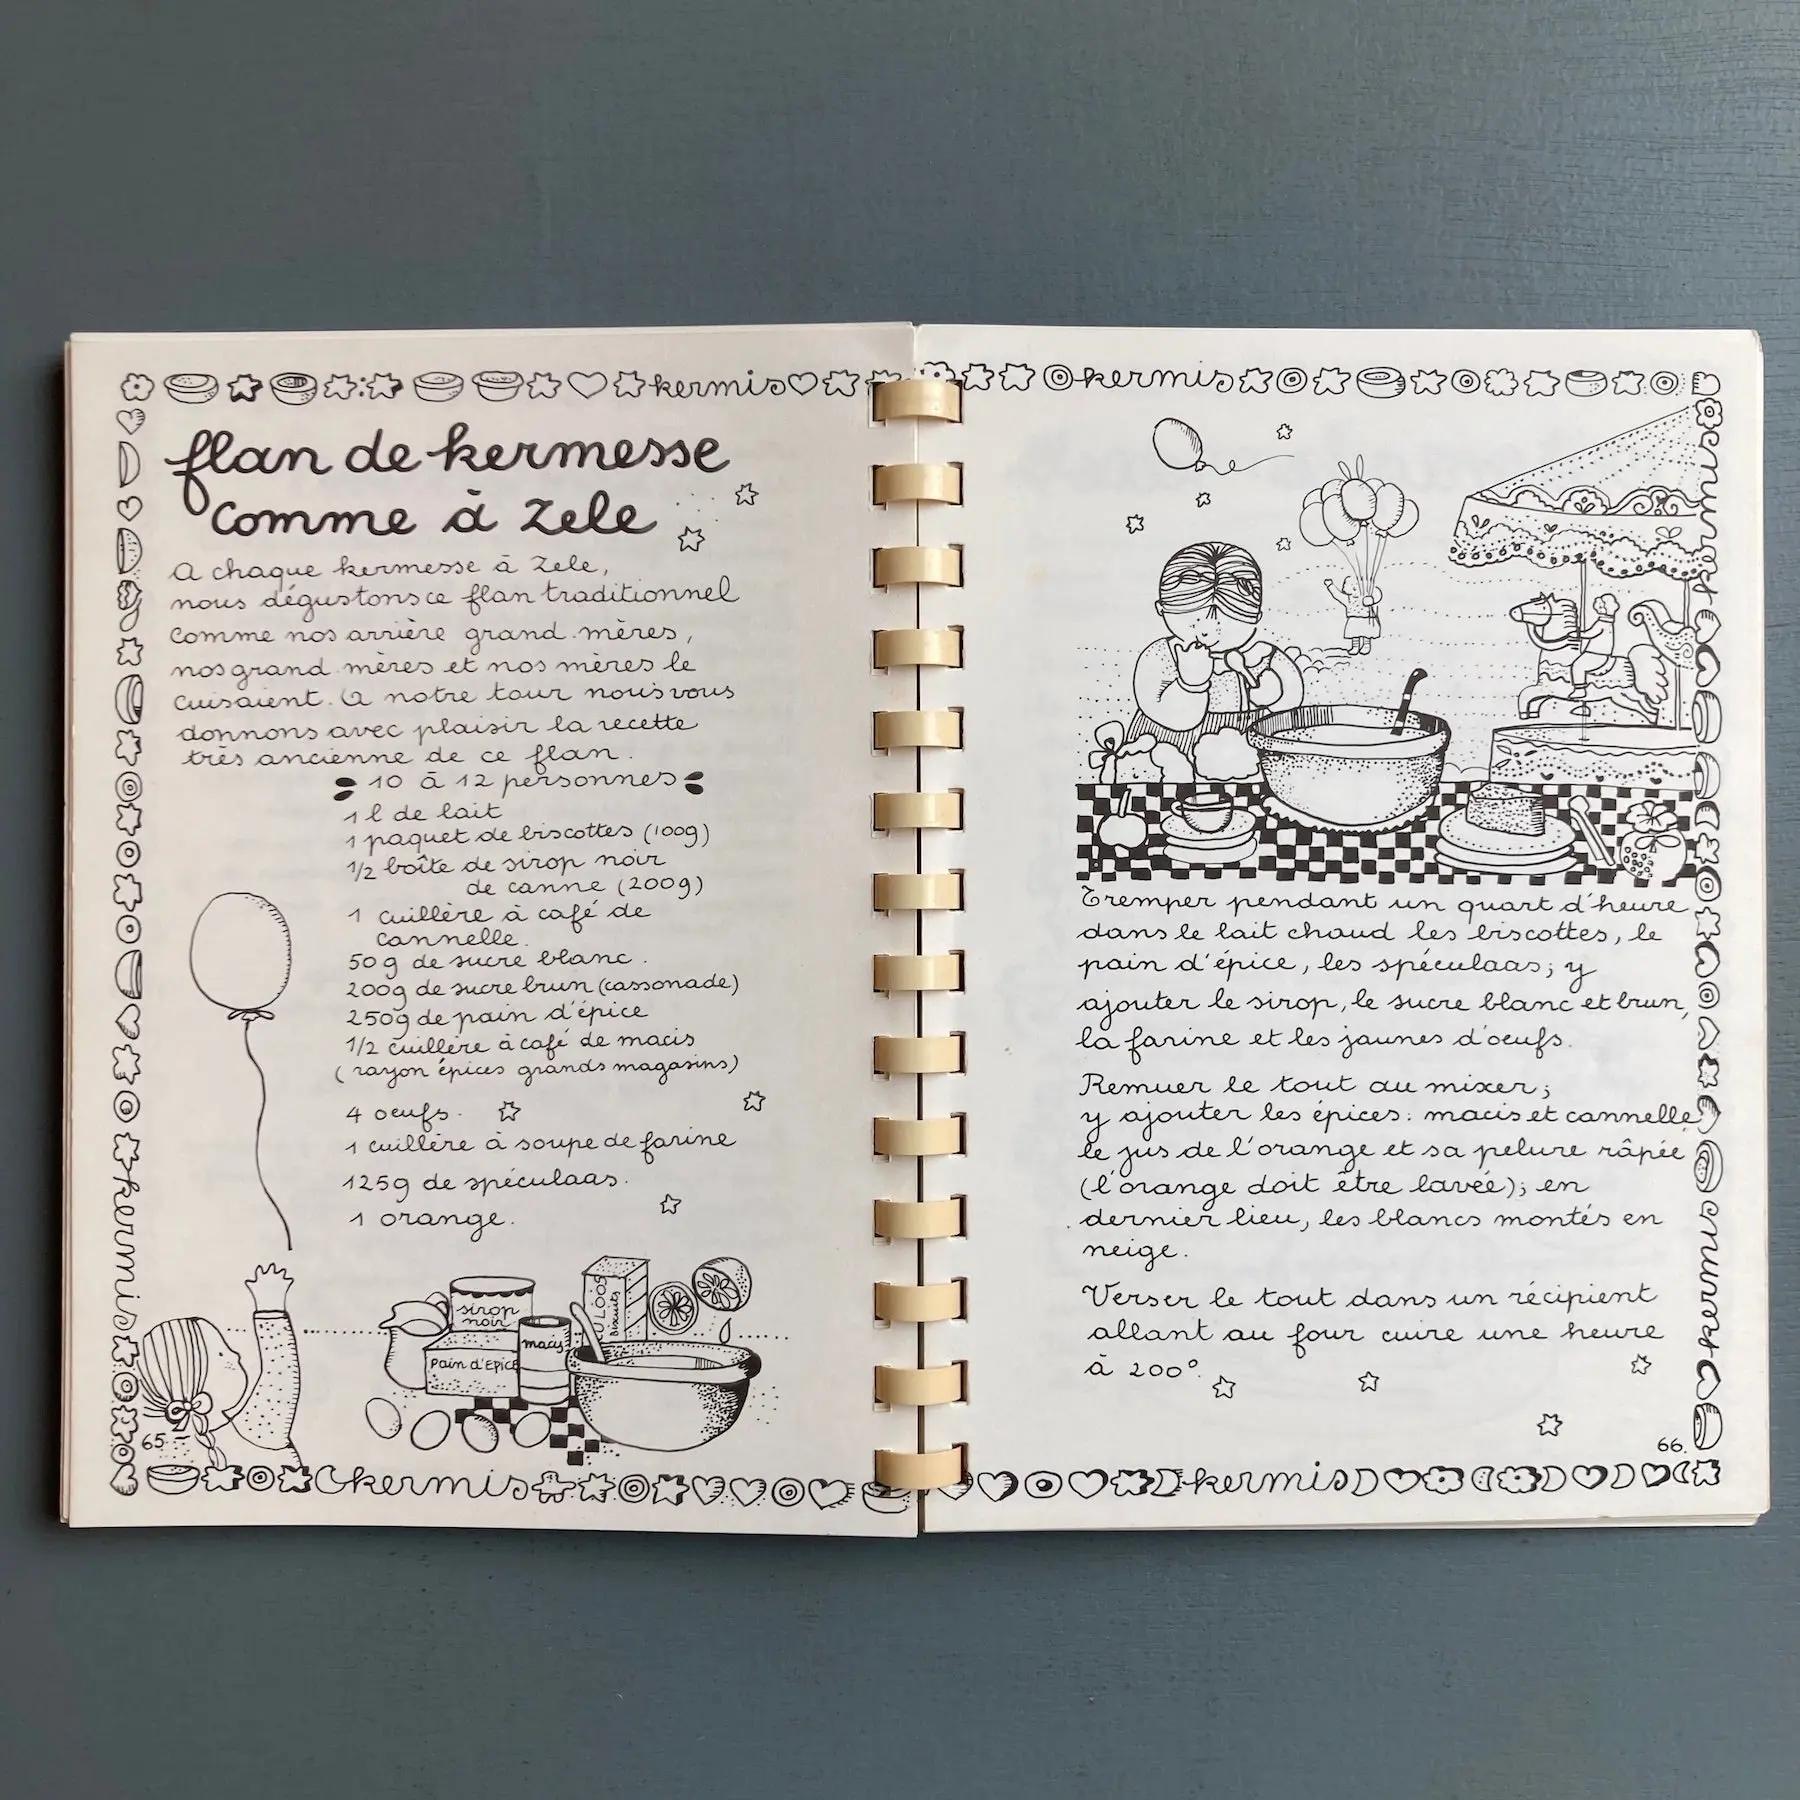 kermis
flan de kermesse
comme à Zele
A chaque kermesse à Zele,
nous dégustons ce flan traditionnel
comme nos arrière grand-mères,
nos grand-mères et nos mères le
cuisaient. A notre tour nous vous
donnons avec plaisir la recette
très ancienne de ce flan.
10 à 12 personnes
1 l de lait
1 paquet de biscottes (100g)
1/2 boîte de sirop noir
de canne (200g)
1 cuillère à café de
cannelle.
50 g de sucre blanc.
200g de sucre brun (cassonade)
250g de pain d'épice
1/2 cuillère à café de macis
(rayon épices grands magasins)
4 oeufs.
1 cuillère à soupe de farine
125g de spéculaas.
1 orange.
sirop
noir
macis
Pain d'Epice
Biscuits
kermis
65
kermis
kermis
Tremper pendant un quart d'heure
dans le lait chaud les biscottes, le
pain d'épice, les spéculaas; y
ajouter le sirop, le sucre blanc et brun,
la farine et les jaunes d'oeufs.
Remuer le tout au mixer;
y ajouter les épices: macis et cannelle,
le jus de l'orange et sa pelure râpée
(l'orange doit être lavée); en
dernier lieu, les blancs montés en
neige.
Verser le tout dans un récipient
allant au four cuire une heure
à 200°.
66.
kermis